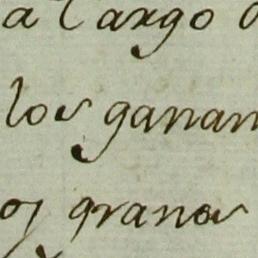 a Cargo
los ganan
granos